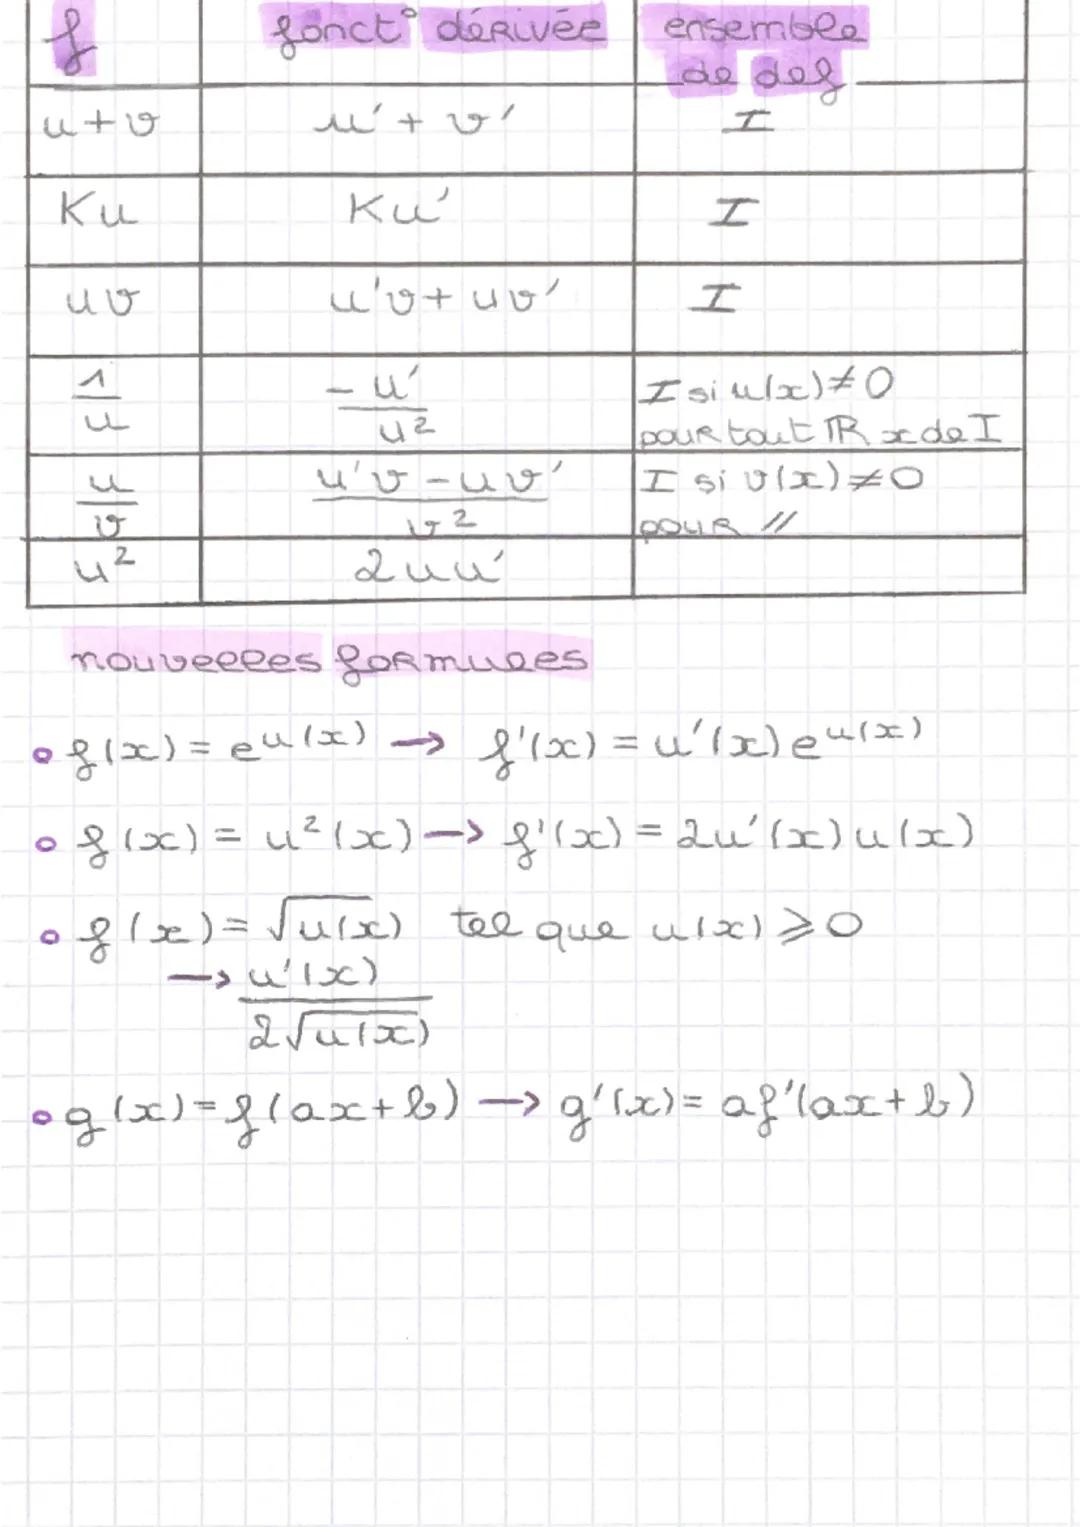 f fonct° dérivée ensemble
de def
u+v u'+v' I
Ku Ku' I
uv u'v+uv' I
1/u -u'/u² I si u(x)≠0
pour tout ℝ x de I
u/v u'v-uv'/v² I si v(x)≠0
pour //
u² 2uu'
nouvelles formules
• f(x) = e^u(x) → f'(x) = u'(x)e^u(x)
• f(x) = u²(x) → f'(x) = 2u'(x)u(x)
• f(x) = √u(x) tel que u(x) ⩾ 0
→ u'(x)
2√u(x)
• g(x) = f(ax+b) → g'(x) = af'(ax+b)